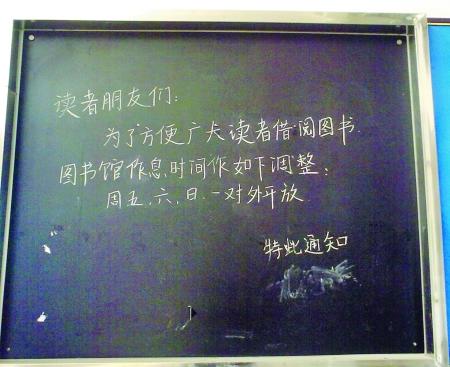 读者朋友们：
为了方便广大读者借阅图书.
图书馆作息时间作如下调整：
周五.六.日.一对外开放.
特此通知